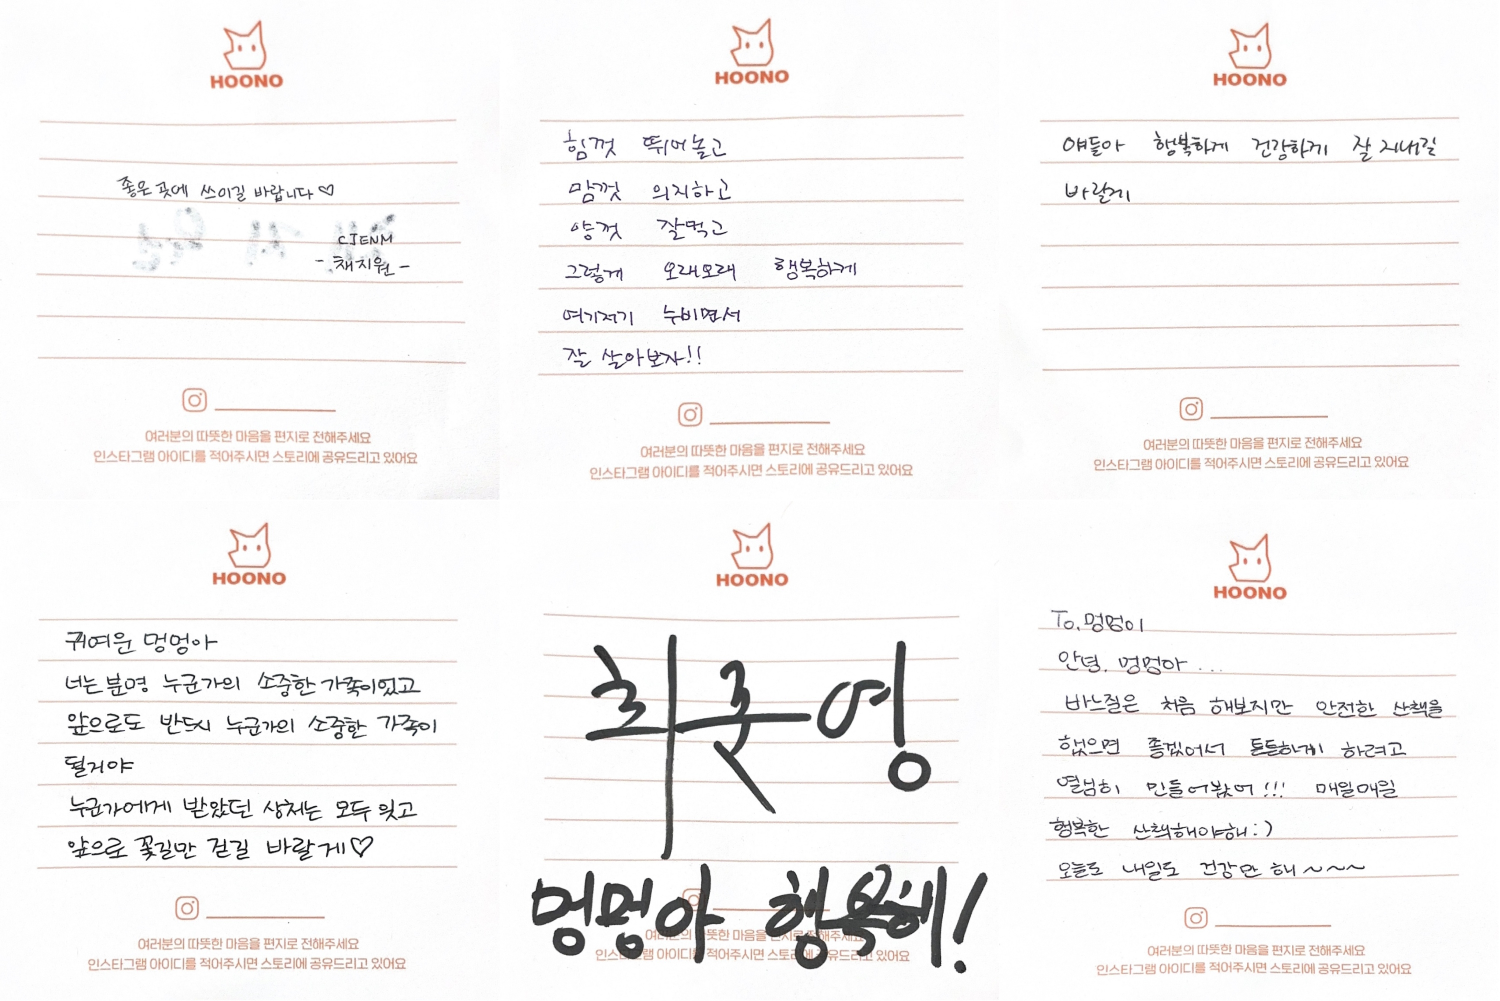 HOONO
좋은 곳에 쓰이길 바랍니다♡
CJENM
- 채지원 -
여러분의 따뜻한 마음을 편지로 전해주세요
인스타그램 아이디를 적어주시면 스토리에 공유드리고 있어요
HOONO
힘껏 뛰어놀고
맘껏 의지하고
양껏 잘먹고
그렇게 오래오래 행복하게
여기저기 누비면서
잘 살아보자!!
여러분의 따뜻한 마음을 편지로 전해주세요
인스타그램 아이디를 적어주시면 스토리에 공유드리고 있어요
HOONO
얘들아 행복하게 건강하게 잘 지내길
바랄게
여러분의 따뜻한 마음을 편지로 전해주세요
인스타그램 아이디를 적어주시면 스토리에 공유드리고 있어요
HOONO
귀여운 멍멍아
너는 분명 누군가의 소중한 가족이었고
앞으로도 반드시 누군가의 소중한 가족이
될거야
누군가에게 받았던 상처는 모두 잊고
앞으로 꽃길만 걷길 바랄게♡
여러분의 따뜻한 마음을 편지로 전해주세요
인스타그램 아이디를 적어주시면 스토리에 공유드리고 있어요
HOONO
멍멍아 행복해!
여러분의 따뜻한 마음을 편지로 전해주세요
인스타그램 아이디를 적어주시면 스토리에 공유드리고 있어요
HOONO
To. 멍멍이
안녕. 멍멍아 ...
바느질은 처음 해보지만 안전한 산책을
했으면 좋겠어서 튼튼하게 하려고
열심히 만들어봤어!!! 매일매일
행복한 산책해야해:)
오늘도 내일도 건강만 해~~~
여러분의 따뜻한 마음을 편지로 전해주세요
인스타그램 아이디를 적어주시면 스토리에 공유드리고 있어요